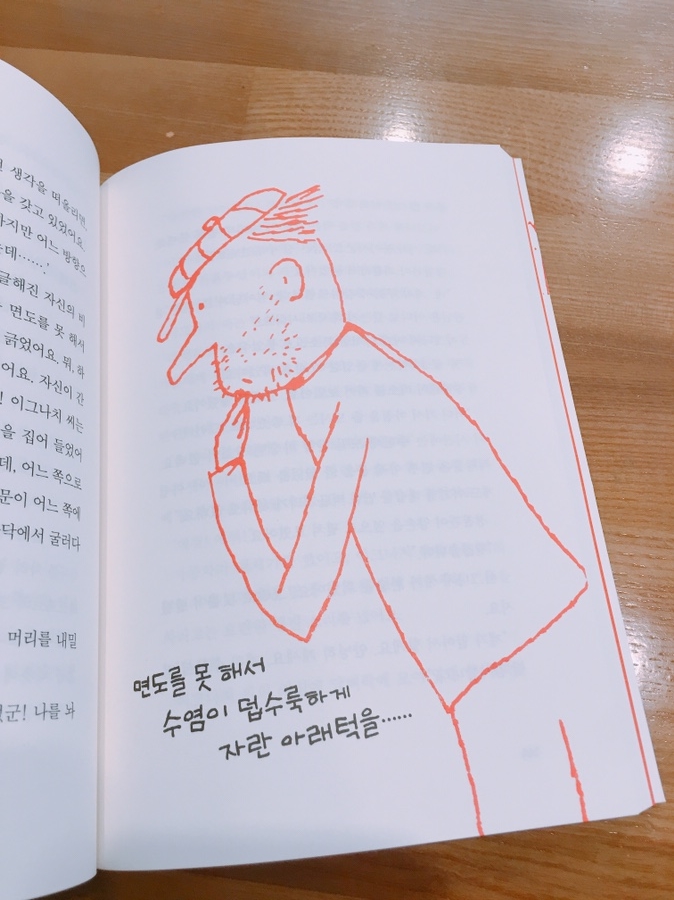 생각을 떠올리면,
을 갖고 있었어요.
하지만 어느 방향으
는데…….'
글해진 자신의 비
면도를 못 해서
긁었어요. 뭐, 하
어요. 자신이 간
! 이그나치 씨는
을 집어 들었어
데, 어느 쪽으로
문이 어느 쪽에
닥에서 굴러다
머리를 내밀
군! 나를 놔
면도를 못 해서
수염이 덥수룩하게
자란 아래턱을……